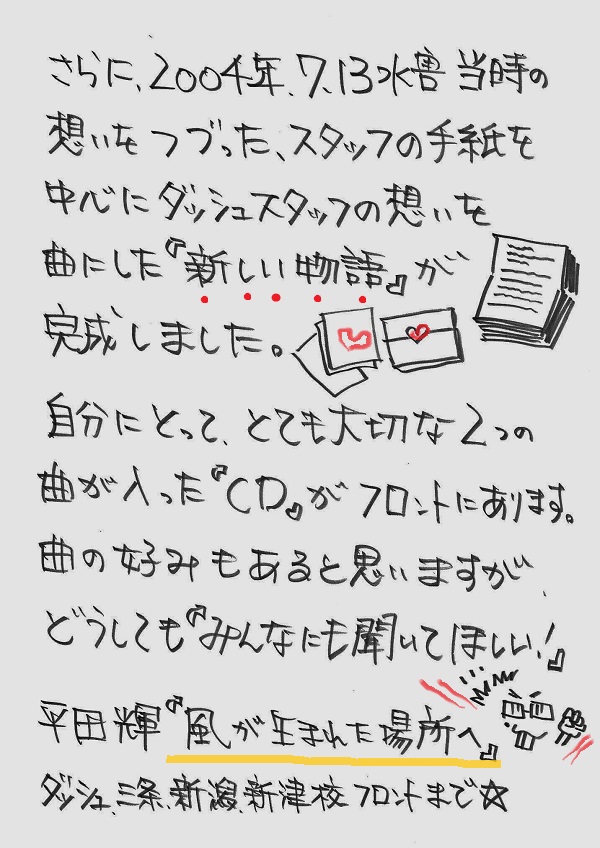 さらに、2004年、7、13水害当時の
想いをつづった、スタッフの手紙を
中心にダッシュスタッフの想いを
曲にした『新しい物語』が
完成しました。
自分にとって、とても大切な2つの
曲が入った『CD』がフロントにあります。
曲の好みもあると思いますが
どうしても『みんなにも聞いてほしい!』
平田輝『風が生まれた場所へ』
ダッシュ、三条、新潟、新津校フロントまで☆